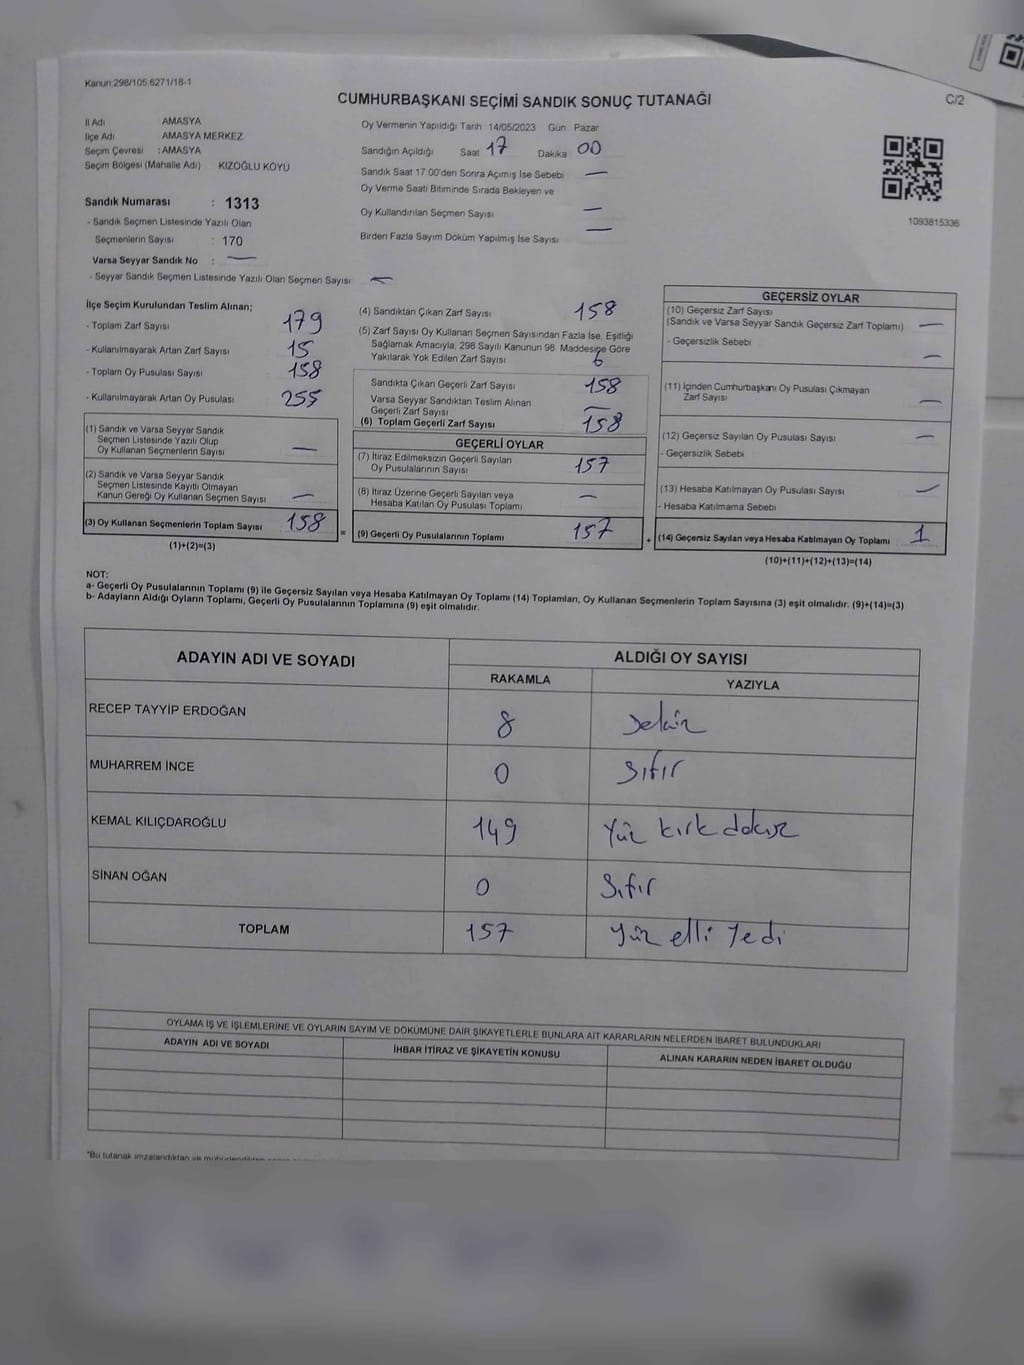 Kanun:298/105,6271/18-1
CUMHURBAŞKANI SEÇİMİ SANDIK SONUÇ TUTANAĞI
C/2
İl Adı AMASYA
İlçe Adı AMASYA MERKEZ
Seçim Çevresi : AMASYA
Seçim Bölgesi (Mahalle Adı) KIZOĞLU KÖYÜ
Oy Vermenin Yapıldığı Tarih 14/05/2023 Gün Pazar
Sandığın Açıldığı Saat 17 Dakika 00
Sandık Saat 17:00'den Sonra Açımış İse Sebebi —
Oy Verme Saati Bitiminde Sırada Bekleyen ve
Oy Kullandırılan Seçmen Sayısı —
Birden Fazla Sayım Döküm Yapılmış İse Sayısı —
1093815336
Sandık Numarası : 1313
- Sandık Seçmen Listesinde Yazılı Olan
Seçmenlerin Sayısı : 170
Varsa Seyyar Sandık No : —
- Seyyar Sandık Seçmen Listesinde Yazılı Olan Seçmen Sayısı —
İlçe Seçim Kurulundan Teslim Alınan;
- Toplam Zarf Sayısı 179
- Kullanılmayarak Artan Zarf Sayısı 15
- Toplam Oy Pusulası Sayısı 158
- Kullanılmayarak Artan Oy Pusulası 255
(1) Sandık ve Varsa Seyyar Sandık
Seçmen Listesinde Yazılı Olup
Oy Kullanan Seçmenlerin Sayısı —
(2) Sandık ve Varsa Seyyar Sandık
Seçmen Listesinde Kayıtlı Olmayan
Kanun Gereği Oy Kullanan Seçmen Sayısı —
(3) Oy Kullanan Seçmenlerin Toplam Sayısı 158
(1)+(2)=(3)
=
(4) Sandıktan Çıkan Zarf Sayısı 158
(5) Zarf Sayısı Oy Kullanan Seçmen Sayısından Fazla İse, Eşitliği
Sağlamak Amacıyla, 298 Sayılı Kanunun 98. Maddesine Göre
Yakılarak Yok Edilen Zarf Sayısı 6
Sandıkta Çıkan Geçerli Zarf Sayısı 158
Varsa Seyyar Sandıktan Teslim Alınan
Geçerli Zarf Sayısı —
(6) Toplam Geçerli Zarf Sayısı 158
GEÇERLİ OYLAR
(7) İtiraz Edilmeksizin Geçerli Sayılan
Oy Pusulalarının Sayısı 157
(8) İtiraz Üzerine Geçerli Sayılan veya
Hesaba Katılan Oy Pusulası Toplamı —
(9) Geçerli Oy Pusulalarının Toplamı 157
+
GEÇERSİZ OYLAR
(10) Geçersiz Zarf Sayısı
(Sandık ve Varsa Seyyar Sandık Geçersiz Zarf Toplamı) —
- Geçersizlik Sebebi —
(11) İçinden Cumhurbaşkanı Oy Pusulası Çıkmayan
Zarf Sayısı —
(12) Geçersiz Sayılan Oy Pusulası Sayısı —
- Geçersizlik Sebebi
(13) Hesaba Katılmayan Oy Pusulası Sayısı —
- Hesaba Katılmama Sebebi
(14) Geçersiz Sayılan veya Hesaba Katılmayan Oy Toplamı 1
(10)+(11)+(12)+(13)=(14)
NOT:
a- Geçerli Oy Pusulalarının Toplamı (9) ile Geçersiz Sayılan veya Hesaba Katılmayan Oy Toplamı (14) Toplamları, Oy Kullanan Seçmenlerin Toplam Sayısına (3) eşit olmalıdır. (9)+(14)=(3)
b- Adayların Aldığı Oyların Toplamı, Geçerli Oy Pusulalarının Toplamına (9) eşit olmalıdır.
ADAYIN ADI VE SOYADI
ALDIĞI OY SAYISI
RAKAMLA YAZIYLA
RECEP TAYYİP ERDOĞAN 8 Sekiz
MUHARREM İNCE 0 Sıfır
KEMAL KILIÇDAROĞLU 149 Yüz kırk dokuz
SİNAN OĞAN 0 Sıfır
TOPLAM 157 Yüz elli Yedi
OYLAMA İŞ VE İŞLEMLERİNE VE OYLARIN SAYIM VE DÖKÜMÜNE DAİR ŞİKAYETLERLE BUNLARA AİT KARARLARIN NELERDEN İBARET BULUNDUKLARI
ADAYIN ADI VE SOYADI İHBAR İTİRAZ VE ŞİKAYETİN KONUSU ALINAN KARARIN NEDEN İBARET OLDUĞU
*Bu tutanak imzalandıktan ve mühürlendikten sonra